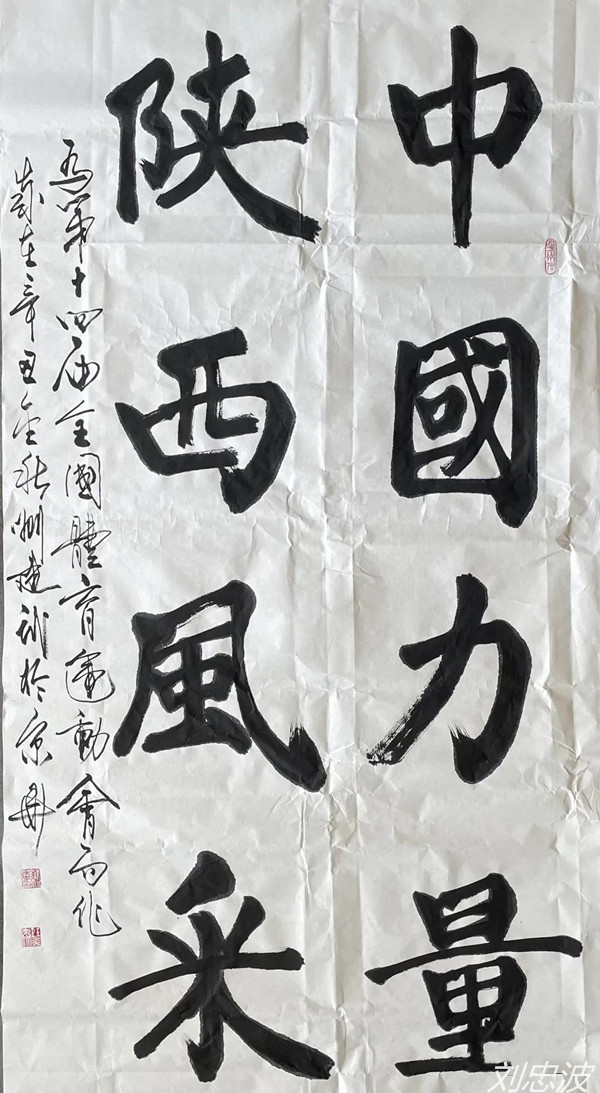 中國力量
陝西風采
为第十四届全國體育運動會而作
歲在辛丑金秋
於京華
刘忠波